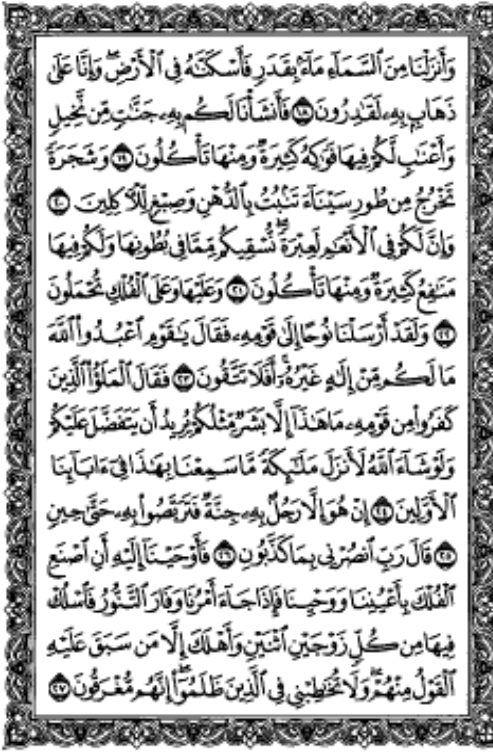 وَأَنزَلْنَا مِنَ ٱلسَّمَآءِ مَآءًۢ بِقَدَرٍ فَأَسْكَنَّـٰهُ فِى ٱلْأَرْضِ ۖ وَإِنَّا عَلَىٰ
ذَهَابٍۭ بِهِۦ لَقَـٰدِرُونَ ١٨ فَأَنشَأْنَا لَكُم بِهِۦ جَنَّـٰتٍ مِّن نَّخِيلٍ
وَأَعْنَـٰبٍ لَّكُمْ فِيهَا فَوَٰكِهُ كَثِيرَةٌ وَمِنْهَا تَأْكُلُونَ ١٩ وَشَجَرَةً
تَخْرُجُ مِن طُورِ سَيْنَآءَ تَنۢبُتُ بِٱلدُّهْنِ وَصِبْغٍ لِّلْـَٔاكِلِينَ ٢٠
وَإِنَّ لَكُمْ فِى ٱلْأَنْعَـٰمِ لَعِبْرَةً ۖ نُّسْقِيكُم مِّمَّا فِى بُطُونِهَا وَلَكُمْ فِيهَا
مَنَـٰفِعُ كَثِيرَةٌ وَمِنْهَا تَأْكُلُونَ ٢١ وَعَلَيْهَا وَعَلَى ٱلْفُلْكِ تُحْمَلُونَ
٢٢ وَلَقَدْ أَرْسَلْنَا نُوحًا إِلَىٰ قَوْمِهِۦ فَقَالَ يَـٰقَوْمِ ٱعْبُدُوا۟ ٱللَّهَ
مَا لَكُم مِّنْ إِلَـٰهٍ غَيْرُهُۥٓ ۖ أَفَلَا تَتَّقُونَ ٢٣ فَقَالَ ٱلْمَلَؤُا۟ ٱلَّذِينَ
كَفَرُوا۟ مِن قَوْمِهِۦ مَا هَـٰذَآ إِلَّا بَشَرٌ مِّثْلُكُمْ يُرِيدُ أَن يَتَفَضَّلَ عَلَيْكُمْ
وَلَوْ شَآءَ ٱللَّهُ لَأَنزَلَ مَلَـٰٓئِكَةً مَّا سَمِعْنَا بِهَـٰذَا فِىٓ ءَابَآئِنَا
ٱلْأَوَّلِينَ ٢٤ إِنْ هُوَ إِلَّا رَجُلٌۢ بِهِۦ جِنَّةٌ فَتَرَبَّصُوا۟ بِهِۦ حَتَّىٰ حِينٍ
٢٥ قَالَ رَبِّ ٱنصُرْنِى بِمَا كَذَّبُونِ ٢٦ فَأَوْحَيْنَآ إِلَيْهِ أَنِ ٱصْنَعِ
ٱلْفُلْكَ بِأَعْيُنِنَا وَوَحْيِنَا فَإِذَا جَآءَ أَمْرُنَا وَفَارَ ٱلتَّنُّورُ ۙ فَٱسْلُكْ
فِيهَا مِن كُلٍّ زَوْجَيْنِ ٱثْنَيْنِ وَأَهْلَكَ إِلَّا مَن سَبَقَ عَلَيْهِ
ٱلْقَوْلُ مِنْهُمْ ۖ وَلَا تُخَـٰطِبْنِى فِى ٱلَّذِينَ ظَلَمُوٓا۟ ۖ إِنَّهُم مُّغْرَقُونَ ٢٧